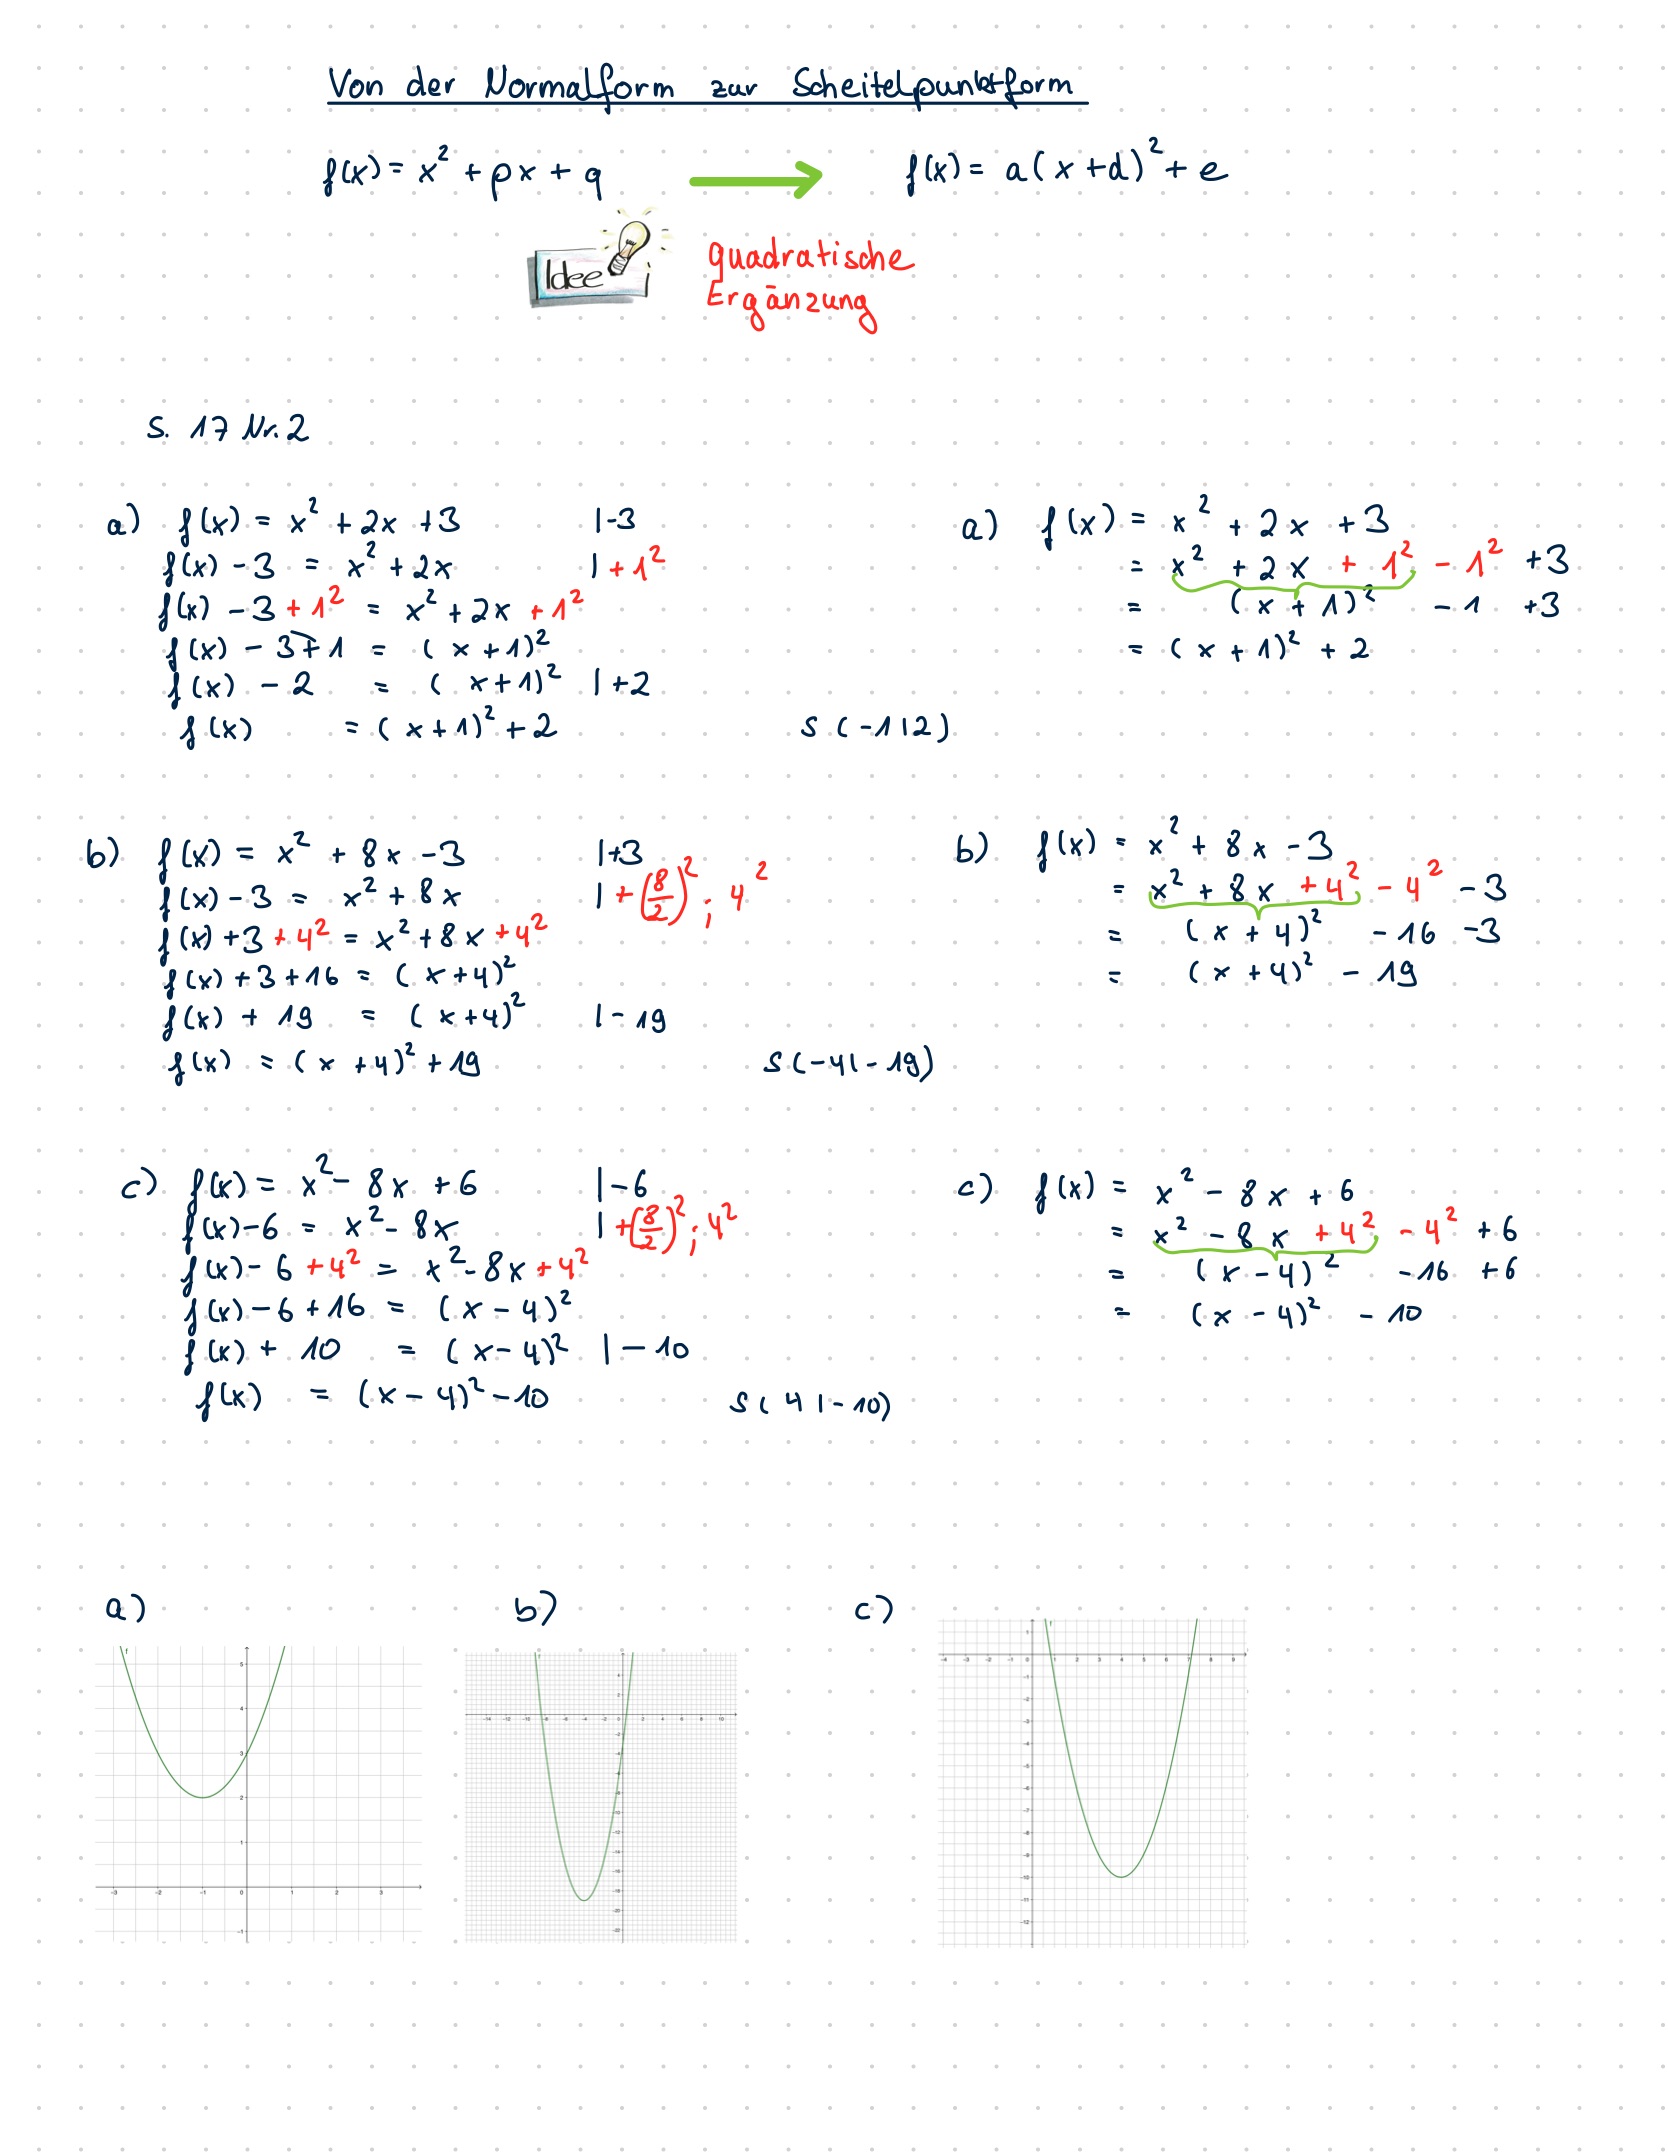 Von der Normalform zur Scheitelpunktform
f(x) = x² + px + q → f(x) = a(x+d)² + e
Idee
quadratische
Ergänzung
S. 17 Nr. 2
a) f(x) = x² + 2x + 3 | -3
f(x) - 3 = x² + 2x | + 1²
f(x) - 3 + 1² = x² + 2x + 1²
f(x) - 3 + 1 = (x+1)²
f(x) - 2 = (x+1)² | +2
f(x) = (x+1)² + 2 S(-1|2)
a) f(x) = x² + 2x + 3
= x² + 2x + 1² - 1² + 3
= (x + 1)² - 1 + 3
= (x + 1)² + 2
b) f(x) = x² + 8x - 3 | +3
f(x) - 3 = x² + 8x | + (8/2)² ; 4²
f(x) + 3 + 4² = x² + 8x + 4²
f(x) + 3 + 16 = (x+4)²
f(x) + 19 = (x+4)² | - 19
f(x) = (x + 4)² + 19 S(-4|-19)
b) f(x) = x² + 8x - 3
= x² + 8x + 4² - 4² - 3
= (x + 4)² - 16 - 3
= (x + 4)² - 19
c) f(x) = x² - 8x + 6 | - 6
f(x) - 6 = x² - 8x | + (8/2)² ; 4²
f(x) - 6 + 4² = x² - 8x + 4²
f(x) - 6 + 16 = (x - 4)²
f(x) + 10 = (x - 4)² | - 10
f(x) = (x - 4)² - 10 S(4|-10)
c) f(x) = x² - 8x + 6
= x² - 8x + 4² - 4² + 6
= (x - 4)² - 16 + 6
= (x - 4)² - 10
a) b) c)